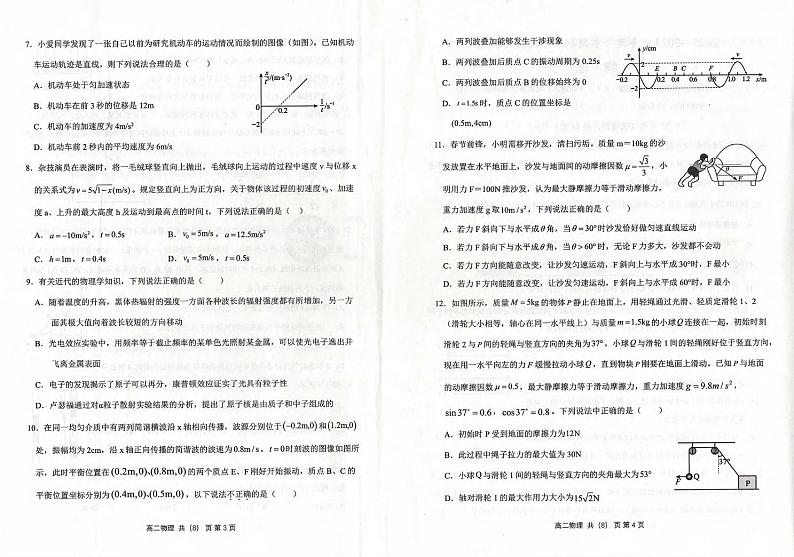 7. 小爱同学发现了一张自己以前为研究机动车的运动情况而绘制的图像（如图）。已知机动
车运动轨迹是直线，则下列说法合理的是（　）
A．机动车处于匀加速状态
B．机动车在前 3 秒的位移是 12m
C．机动车的加速度为 4m/s²
D．机动车在前 2 秒内的平均速度为 6m/s
x/t²/(m·s⁻²)
0
0.2
1/t/s⁻¹
−2
8. 杂技演员在表演时，将一毛绒球竖直向上抛出，毛绒球向上运动的过程中速度 v 与位移 x
的关系式为 v=5√(1−x)(m/s)。规定竖直向上为正方向，关于物体该过程的初速度 v₀、加速
度 a、上升的最大高度 h 及运动到最高点的时间 t，下列说法正确的是（　）
A．a=−10m/s²，t=0.5s　B．v₀=5m/s，a=12.5m/s²
C．h=1m，t=0.4s　D．v₀=5m/s，t=0.5s
9. 有关近代的物理学知识，下列说法正确的是（　）
A．随着温度的升高，黑体热辐射的强度一方面各种波长的辐射强度都有所增加，另一方
面其极大值向着波长较短的方向移动
B．光电效应实验中，用频率等于截止频率的某单色光照射某金属，可以使光电子逸出并
飞离金属表面
C．电子的发现揭示了原子可以再分，康普顿效应证实了光具有粒子性
D．卢瑟福通过对α粒子散射实验结果的分析，提出了原子核是由质子和中子组成的
10. 在同一均匀介质中有两列简谐横波沿 x 轴相向传播，波源分别位于(−0.2m,0)和(1.2m,0)
处，振幅均为 2cm，沿 x 轴正向传播的简谐波的波速为0.8m/s，t=0时刻波的图像如图所
示，此时平衡位置在(0.2m,0)、(0.8m,0)的两个质点 E、F 刚好开始振动，质点 B、C 的
平衡位置坐标分别为(0.4m,0)、(0.5m,0)，以下说法不正确的是（　）
高二物理 共（8）页 第 3 页
A．两列波叠加能够发生干涉现象
B．两列波叠加后质点 C 的振动周期为 0.25s
C．两列波叠加后质点 B 的位移始终为 0
D．t=1.5s时，质点 C 的位置坐标是
(0.5m,4cm)
y/cm
v
2
E B C F
v
−0.2 0 0.2 0.4 0.6 0.8 1.0 1.2 x/m
−2
11. 春节前锋，小明需移开沙发，清扫污垢。质量 m=10kg 的沙
发放置在水平地面上，沙发与地面间的动摩擦因数 μ=√3/3，小
明用力 F=100N 推沙发，认为最大静摩擦力等于滑动摩擦力，
重力加速度 g 取10m/s²，下列说法正确的是（　）
θ
F
A．若力 F 斜向下与水平成θ角，当θ=30°时沙发恰好做匀速直线运动
B．若力 F 斜向下与水平成θ角，当θ>60°时，无论 F 力多大，沙发都不会动
C．若力 F 方向能随意改变，让沙发匀速运动，F 斜向上与水平成 30°时，F 最小
D．若力 F 方向能随意改变，让沙发匀速运动，F 斜向上与水平成 60°时，F 最小
12. 如图所示，质量 M=5kg 的物体 P 静止在地面上，用轻绳通过光滑、轻质定滑轮 1、2
（滑轮大小相等，轴心在同一水平线上）与质量 m=1.5kg 的小球 Q 连接在一起，初始时刻
滑轮 2 与 P 间的轻绳与竖直方向的夹角为37°，小球 Q 与滑轮 1 间的轻绳刚好位于竖直方向，
现在用一水平向左的力 F 缓慢拉动小球 Q，直到物块 P 刚要在地面上滑动。已知 P 与地面
的动摩擦因数 μ=0.5，最大静摩擦力等于滑动摩擦力，重力加速度 g=9.8m/s²，
sin37°=0.6，cos37°=0.8。下列说法中正确的是（　）
A．初始时 P 受到地面的摩擦力为12N
B．此过程中绳子拉力的最大值为 30N
C．小球 Q 与滑轮 1 间的轻绳与竖直方向的夹角最大为53°
D．轴对滑轮 1 的最大作用力大小为15√2N
37°
F
Q
P
高二物理 共（8）页 第 4 页